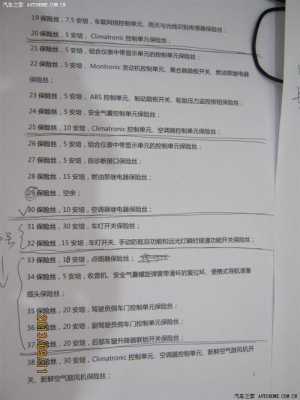 汽车之家 AUTOHOME.COM.CN
19 保险丝，7.5 安培，车载网络控制单元、雨天与光线识别传感器保险丝；
20 保险丝，5 安培，Climatronic 控制单元保险丝；
21 保险丝，5 安培，组合仪表中带显示单元的控制单元保险丝；
22 保险丝，5 安培，Motronic 发动机控制单元、离合器踏板开关、燃油泵继电器
保险丝；
23 保险丝，5 安培，ABS 控制单元、制动踏板开关、轮胎压力监控按钮保险丝；
24 保险丝，5 安培，安全气囊控制单元保险丝；
25 保险丝，10 安培，Climatronic 控制单元、空调器控制单元保险丝；
26 保险丝，5 安培，组合仪表中带显示单元的控制单元保险丝；
27 保险丝，5 安培，自诊断接口保险丝；
28 保险丝，15 安培，燃油泵继电器保险丝；
29 保险丝，空余；
30 保险丝，10 安培，空调器继电器保险丝；
31 保险丝，30 安培，车灯开关保险丝；
32 保险丝，15 安培，车灯开关、手动防眩目功能和远光灯瞬时接通功能开关保险丝；
33 保险丝，安培，点烟器保险丝；
34 保险丝，5 安培，收音机、安全气囊螺旋弹簧带滑环的复位环、便携式导航准备
插头保险丝
35 保险丝，20 安培，驾驶员侧车门控制单元保险丝；
36 保险丝，20 安培，副驾驶员侧车门控制单元保险丝；
37 保险丝，20 安培，后部车窗升降器联锁开关保险丝
38 保险丝，30 安培，Climatronic 控制单元、空调器控制单元、新鲜空气鼓风机开
关、新鲜空气鼓风机保险丝；
汽车之家 AUTOHOME.COM.CN